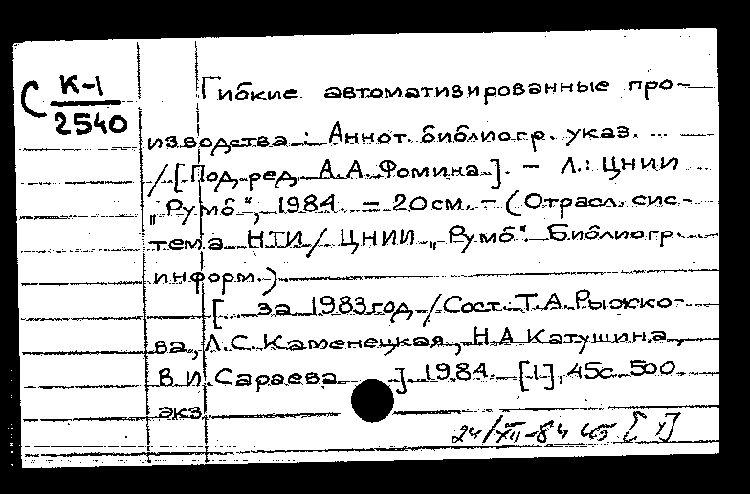 С К-1
2540
Гибкие автоматизированные про-
изводства: Аннот. библиогр. указ. ...
/ [Под ред. А.А. Фомина]. - Л.: ЦНИИ
„Румб“, 1984. - 20 см. - (Отрасл. сис-
тема НТИ / ЦНИИ „Румб“. Библиогр.
информ.)
[ за 1983 год / Сост.: Т.А. Рыжко-
ва, Л.С. Каменецкая, Н.А. Катушина,
В.И. Сараева ] 1984. [1], 45с. 500
экз.
24/XII-84